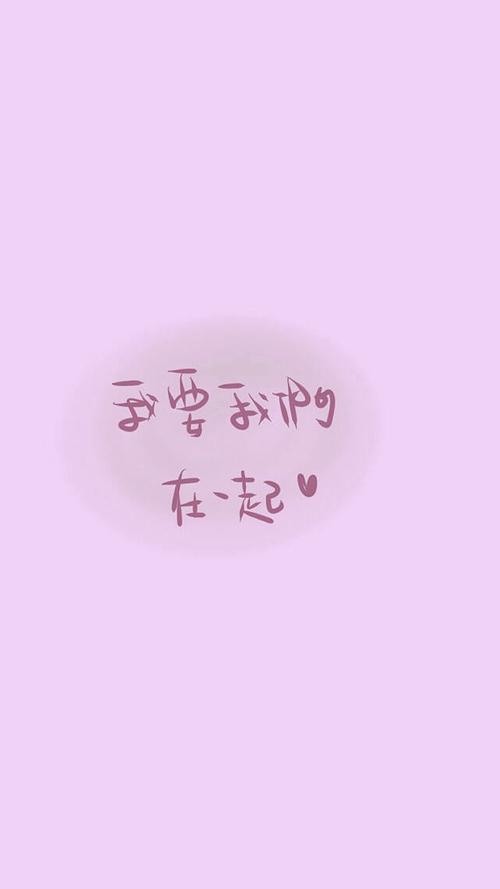 我要我们
在一起